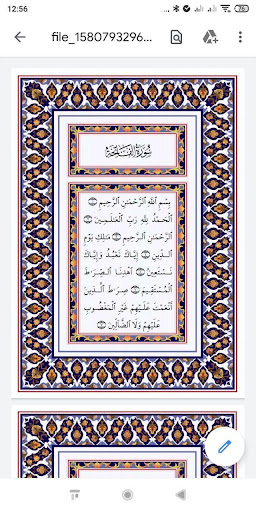 12:56
76
file_1580793296...
سُورَةُ الفَاتِحَةِ
بِسْمِ ٱللَّهِ ٱلرَّحْمَٰنِ ٱلرَّحِيمِ ۝١
ٱلْحَمْدُ لِلَّهِ رَبِّ ٱلْعَٰلَمِينَ ۝٢
ٱلرَّحْمَٰنِ ٱلرَّحِيمِ ۝٣ مَٰلِكِ يَوْمِ
ٱلدِّينِ ۝٤ إِيَّاكَ نَعْبُدُ وَإِيَّاكَ
نَسْتَعِينُ ۝٥ ٱهْدِنَا ٱلصِّرَٰطَ
ٱلْمُسْتَقِيمَ ۝٦ صِرَٰطَ ٱلَّذِينَ
أَنْعَمْتَ عَلَيْهِمْ غَيْرِ ٱلْمَغْضُوبِ
عَلَيْهِمْ وَلَا ٱلضَّآلِّينَ ۝٧